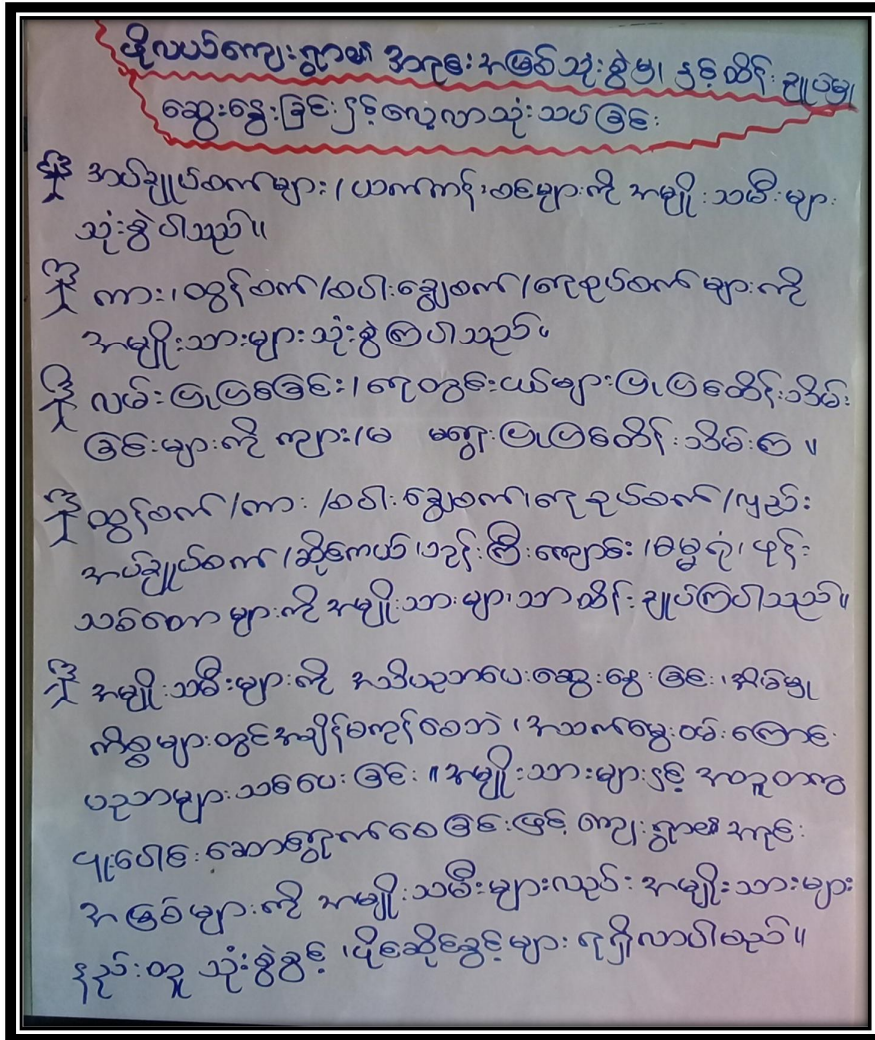 ဖိုလယ်ကျေးရွာ၏ အရင်းအမြစ်သုံးစွဲမှု၊ နှင့်ထိန်းချုပ်မှု
ဆွေးနွေးခြင်းနှင့်လေ့လာသုံးသပ်ခြင်း
အပ်ချုပ်စက်များ၊ ယက္ကန်းစင်များကို အမျိုးသမီးများ
သုံးစွဲပါသည်။
ကား၊ထွန်စက်/စပါးချွေစက်/ရေစုပ်စက်များကို
အမျိုးသားများသုံးစွဲကြပါသည်။
လမ်းပြုပြင်ခြင်း၊ ရေတွင်းငယ်များပြုပြင်ထိန်းသိမ်း
ခြင်းများကို ကျား/မ မရွေးပြုပြင်ထိန်းသိမ်း၏။
ထွန်စက်/ကား/စပါးချွေစက်၊ရေစုပ်စက်/လှည်း
အပ်ချုပ်စက်/ဆိုင်ကယ်၊ဘုန်းကြီးကျောင်း၊ဓမ္မရုံ၊ ဖုန်း
သစ်တောများကို အမျိုးသားများသာထိန်းချုပ်ကြပါသည်။
အမျိုးသမီးများကို အသိပညာပေးဆွေးနွေးခြင်း၊အိမ်မှု
ကိစ္စများတွင်အချိန်မကုန်စေဘဲ၊ အသက်မွေးဝမ်းကြောင်း
ပညာများသင်ပေးခြင်း။အမျိုးသားများနှင့် အတူတကွ
ပူးပေါင်းဆောင်ရွက်စေခြင်းဖြင့် ကျေးရွာ၏ အရင်း
အမြစ်များကို အမျိုးသမီးများလည်း အမျိုးသားများ
နည်းတူ သုံးစွဲခွင့်၊ပိုင်ဆိုင်ခွင့်များ ရရှိလာပါမည်။